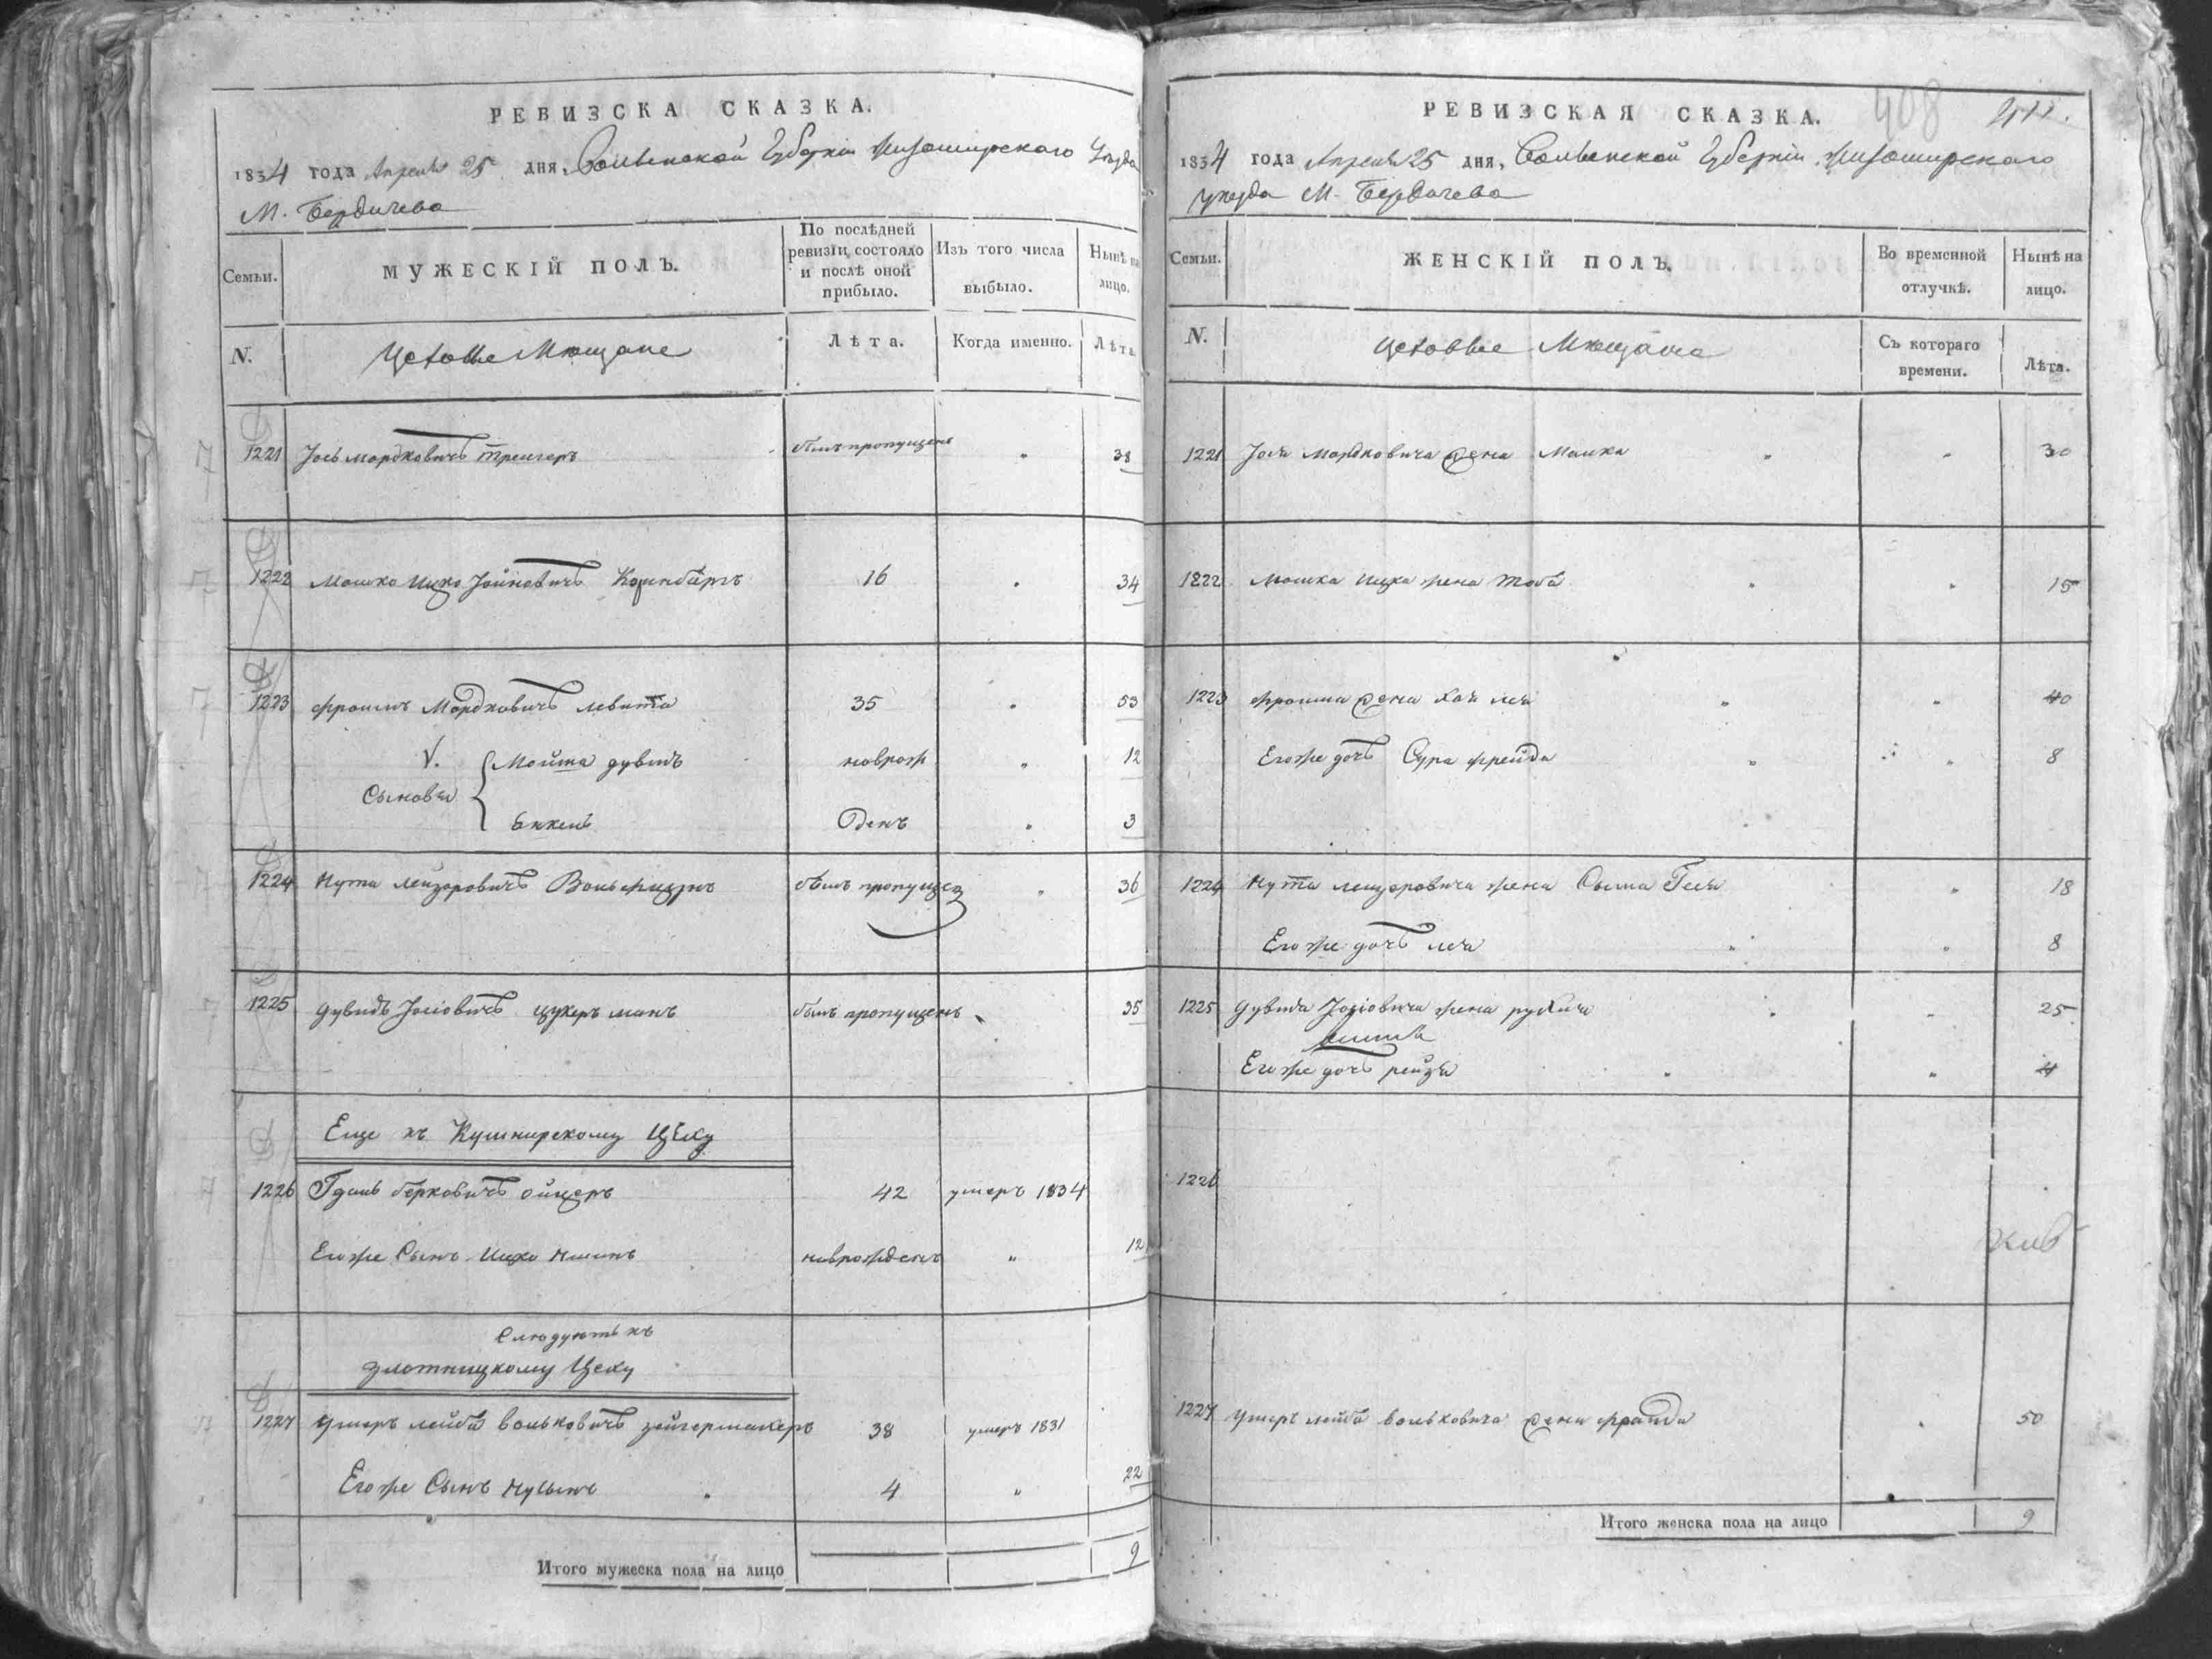 РЕВИЗСКА СКАЗКА.
1834 года Апреля 25 дня, Волынской Губерніи Житомирского Уезда
М. Бердичева
Семьи.
МУЖЕСКІЙ ПОЛЪ.
По послѣдней ревизіи состояло и послѣ оной прибыло.
Изъ того числа выбыло.
Нынѣ на лицо.
N.
Цеховые Мещане
Лѣта.
Когда именно.
Лѣта.
1221 Іось Мордковичъ Трейгеръ былъ пропущенъ " 38
1222 Мошко Ицко Іойновичъ 16 " 34
1223 Фроимъ Мордковичъ Левита 35 " 53
V. Мойта дувидъ новрож " 12
Сыновья
Янкель Оденъ " 3
1224 Нута Лейзоровичъ былъ пропущен " 36
1225 Дувидъ Іосіовичъ Цукерманъ былъ пропущенъ 35
Еще къ Кушнирскому Цеху
1226 Берковичъ Ойцеръ 42 умеръ 1834
Егоже Сынъ Ицко новрожденъ " 12
Следуютъ къ
Злотницкому Цеху
1227 Умеръ Лейба Вольковичъ Зейгермахеръ 38 умеръ 1831
Егоже Сынъ Нусынъ " 4 " 22
Итого мужеска пола на лицо 9
408 411.
РЕВИЗСКАЯ СКАЗКА.
1834 года Апреля 25 дня, Волынской Губерніи Житомирского
уезда М. Бердичева
Семьи.
ЖЕНСКІЙ ПОЛЪ.
Во временной отлучкѣ.
Нынѣ на лицо.
N.
Цеховые Мещане
Съ котораго времени.
Лѣта.
1221 Іося Мордковича жена Малка " " 30
1222 Мошка Ицка жена Тоба " " 15
1223 Фроима жена Хая Лея " " 40
Егоже дочь Сура Фрейда " " 8
1224 Нута Лейзоровича жена Сима Геля " 18
Егоже дочь Лея " " 8
1225 Дувида Іосіовича жена " " 25
Егоже дочь Рейзя " " 4
1226
1227 Умеръ Лейба Вольковича жена Фрайда " 50
Итого женска пола на лицо 9